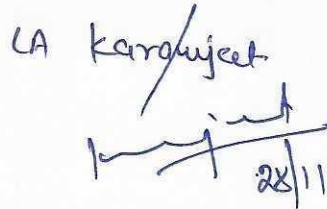 LA Karamjeet
28/11